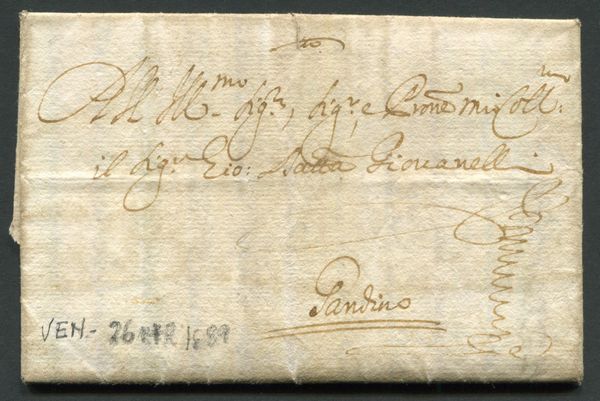 to.
All Ill.mo Sig.r, Sig.r e Prone mio Coll.mo
il Sig.r Gio: Batta Giovanelli
Gandino
VEN- 26 1689